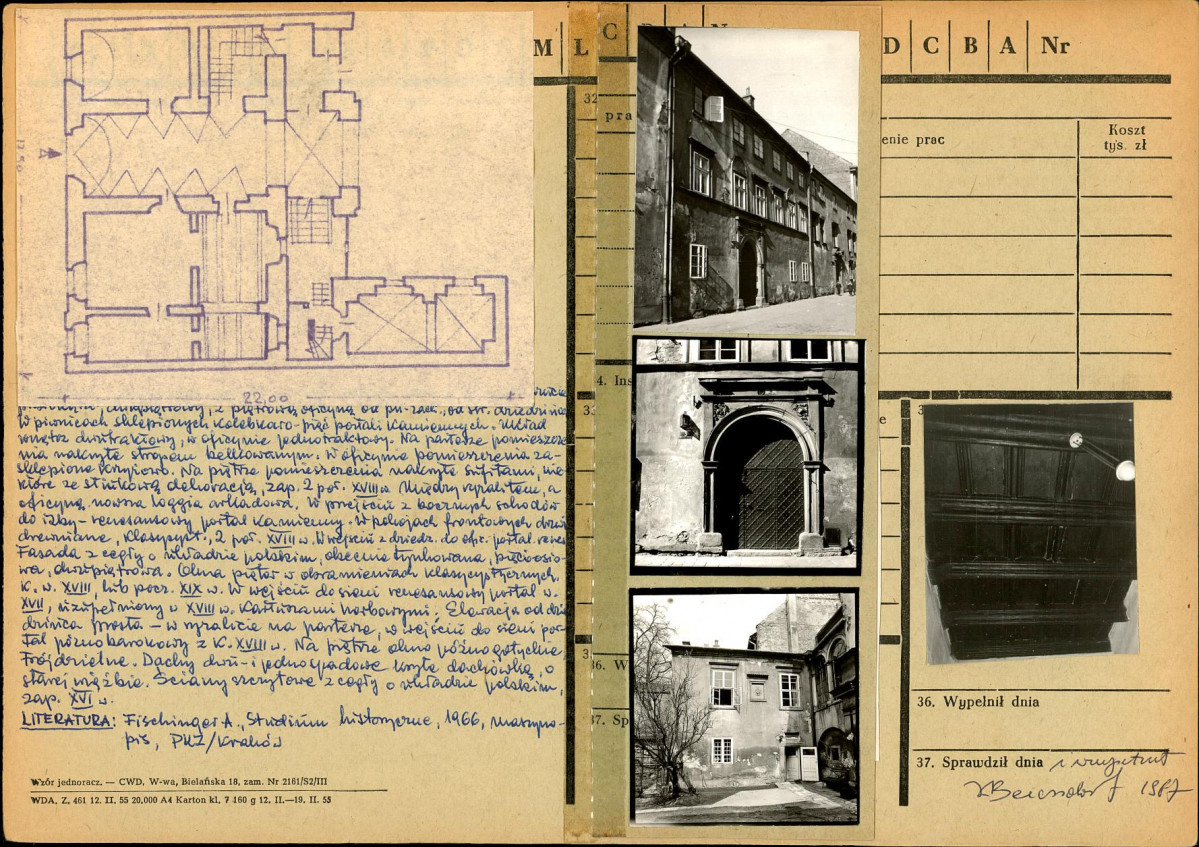 M L
C D A N
D C B A Nr
32
pra
enie prac
Koszt
tys. zł
22,00
W piwnicach sklepionych kolebkowo - pięć portali kamiennych. Układ
wnętrz dwutraktowy, w oficynie jednotraktowy. Na parterze pomieszcze
nia nakryte stropem belkowanym. W oficynie pomieszczenia za-
sklepione krzyżowo. Na piętrze pomieszczenia nakryte sufitami, nie-
które ze stiukową dekoracją, zap. 2 poł. XVIII w. Między ryzalitem, a
oficyną nowsza loggia arkadowa. W przejściu z bocznych schodów
do izby - renesansowy portal kamienny. W pokojach frontowych drzwi
drewniane, klasycyst., 2 poł. XVIII w. W wejściu z dziedz. do ofic. portal renes
Fasada z cegły o układzie polskim, obecnie tynkowana, pięcioosio-
wa, dwupiętrowa. Okna pięter w obramieniach klasycystycznych
K. w. XVIII, lub pocz. XIX w. W wejściu do sieni renesansowy portal w.
XVII, uzupełniony w XVIII w. kartuszami herbowymi. Elewacja od dzie
dzińca prosta - w ryzalicie na parterze, w wejściu do sieni por-
tal późnobarokowy z K. XVIII w. Na piętrze okno późnogotyckie,
trójdzielne. Dachy dwu- i jednospadowe kryte dachówką, o
starej więźbie. Ściany szczytowe z cegły o układzie polskim,
zap. XVI w.
LITERATURA: Fischinger A., Studium historyczne, 1966, maszyno-
pis, PKZ/Kraków
4. Ins
36. W
37. Sp
Wzór jednoracz. — CWD, W-wa, Bielańska 18, zam. Nr 2161/S2/III
WDA. Z. 461 12. II. 55 20.000 A4 Karton kl. 7 160 g 12. II.—19. II. 55
36. Wypełnił dnia
37. Sprawdził dnia
1987